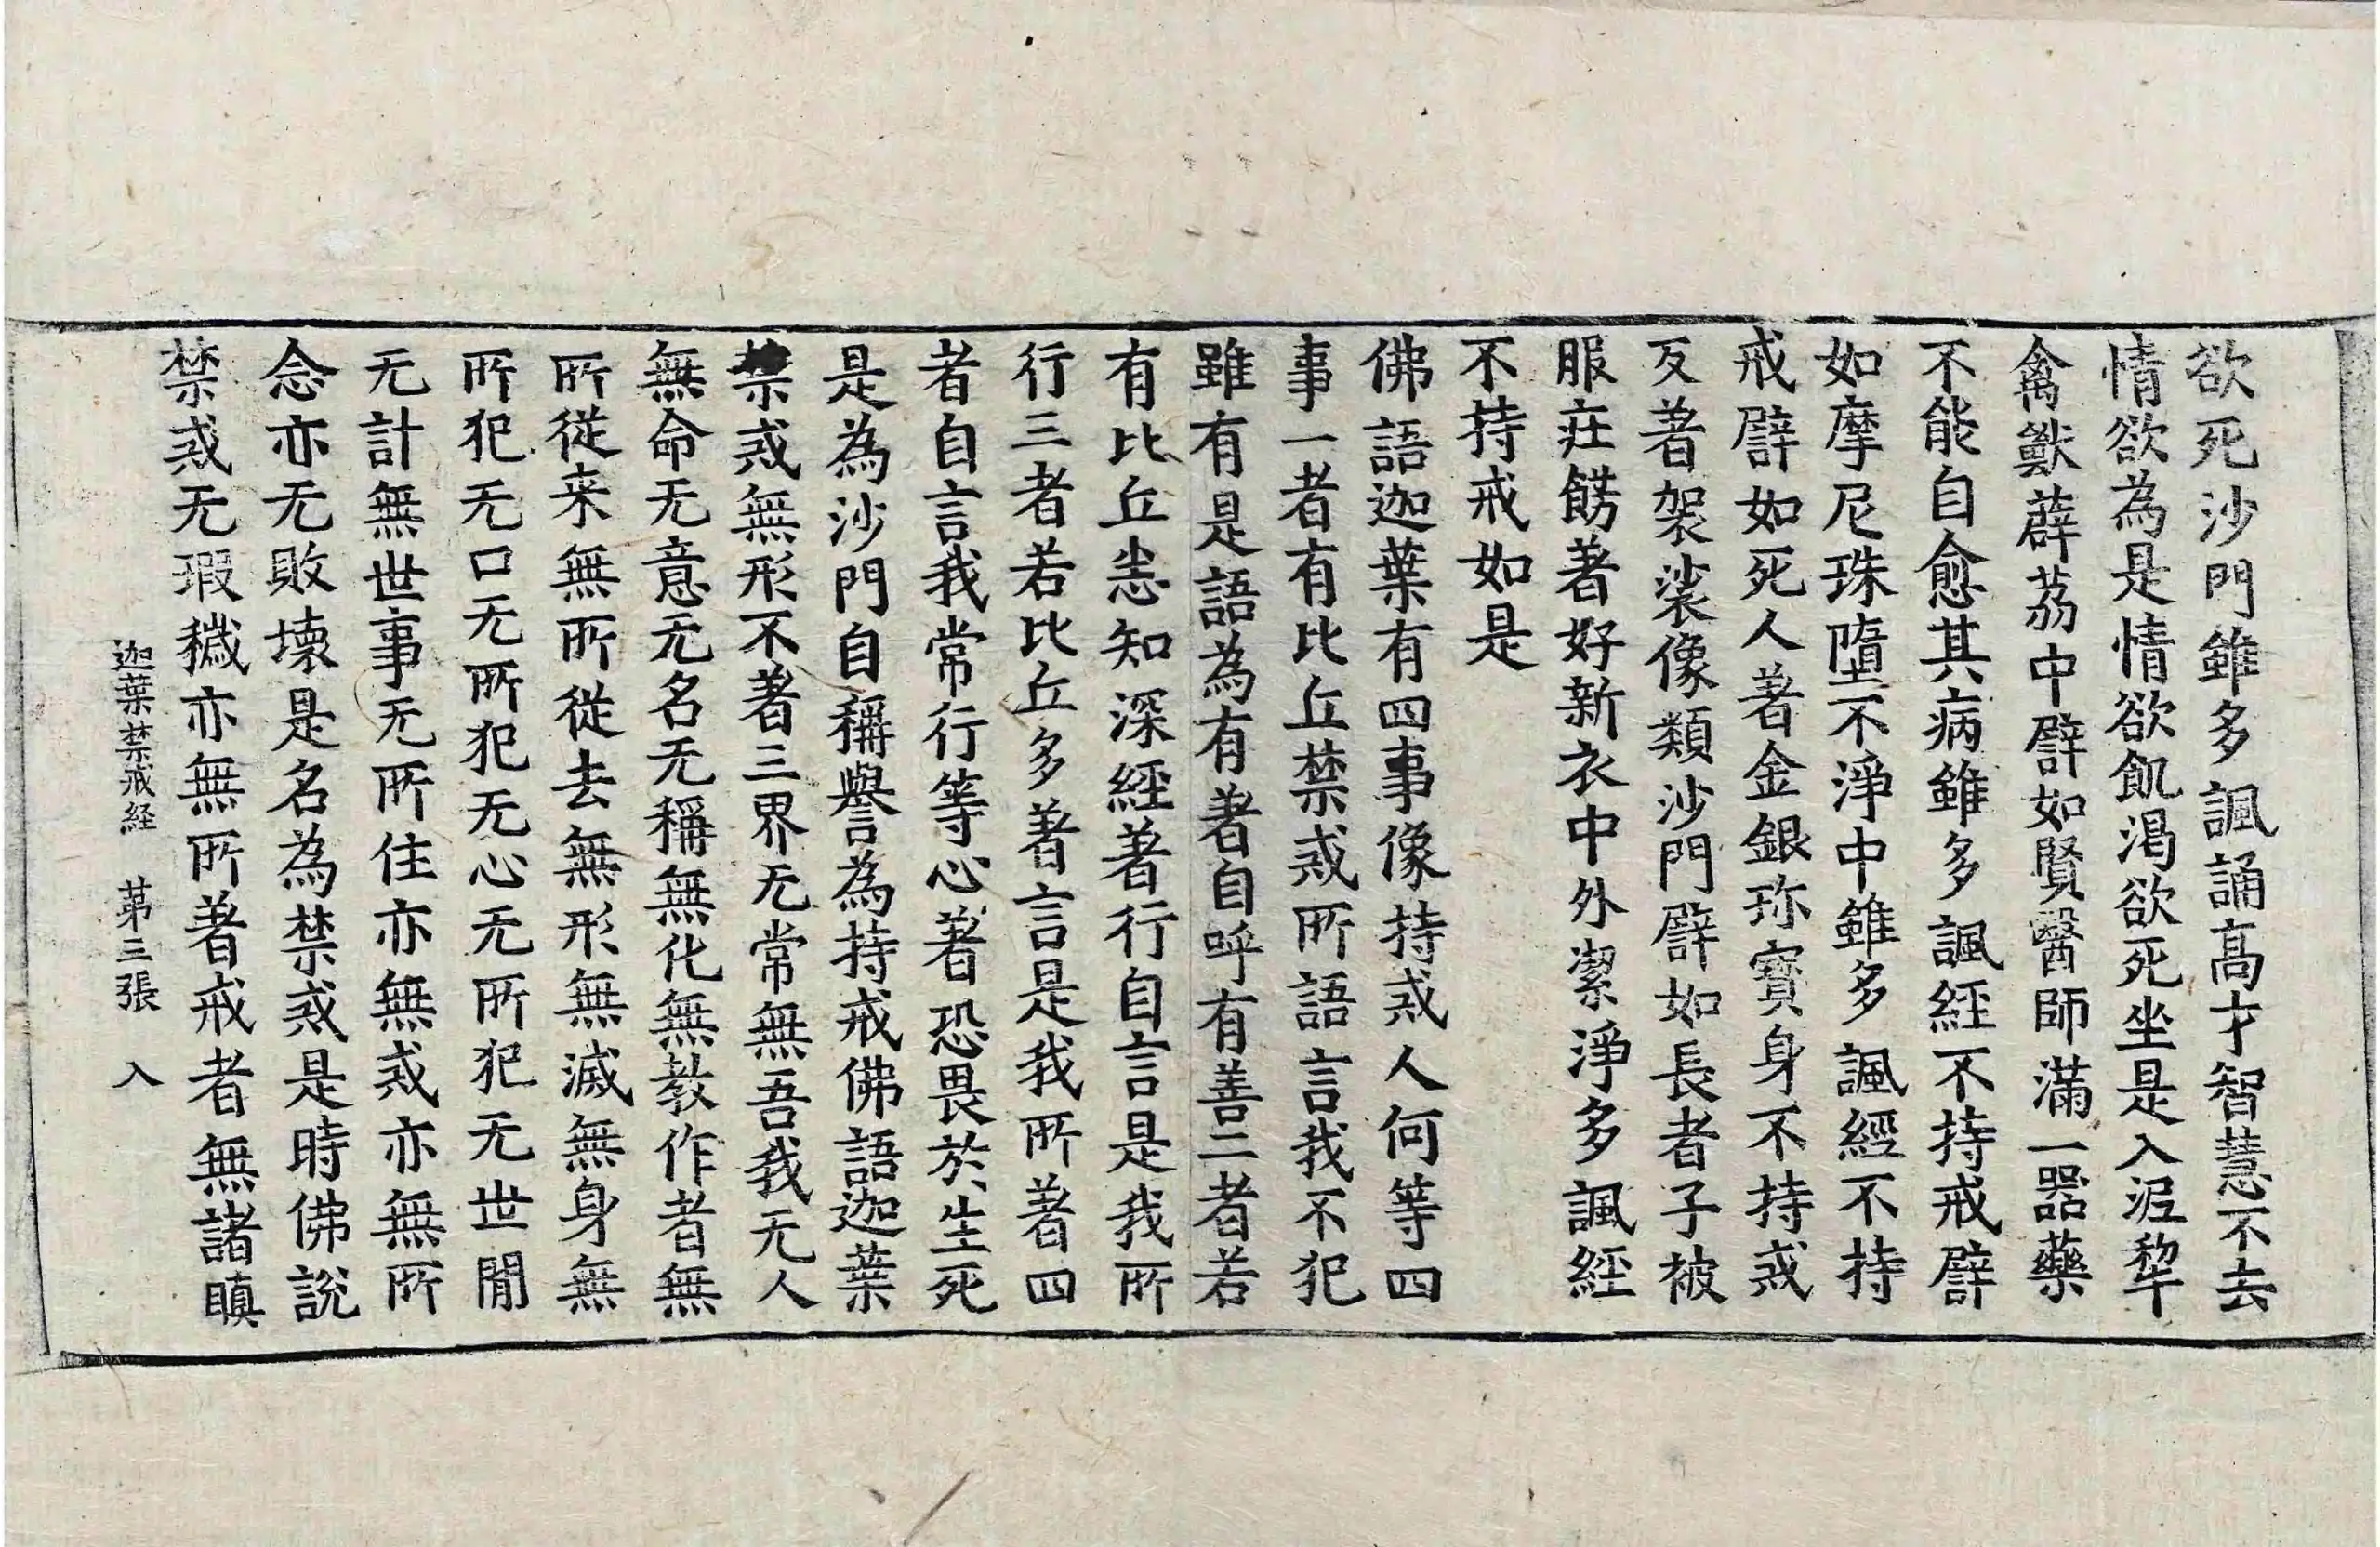 欲死沙門雖多諷誦髙才智慧不去
情欲為是情欲飢渴欲死坐是入泥犁
禽獸薜荔中譬如賢醫師滿一器藥
不能自愈其病雖多諷経不持戒譬
如摩尼珠墮不淨中雖多諷經不持
戒譬如死人著金銀珎寶身不持戒
反著袈裟像類沙門譬如長者子被
服莊餝著好新衣中外潔淨多諷経
不持戒如是
佛語迦葉有四事像持戒人何等四
事一者有比丘禁戒所語言我不犯
雖有是語為有著自呼有善二者若
有比丘悉知深經著行自言是我所
行三者若比丘多著言是我所著四
者自言我常行等心著恐畏於生死
是為沙門自稱譽為持戒佛語迦葉
禁戒無形不著三界无常無吾我无人
無命无意无名无稱無化無教作者無
所從来無所從去無形無滅無身無
所犯无口无所犯无心无所犯无世閒
无計無世事无所住亦無戒亦無所
念亦无敗壞是名為禁戒是時佛説
禁戒无瑕穢亦無所著戒者無諸瞋
迦葉禁戒経　苐三張　入